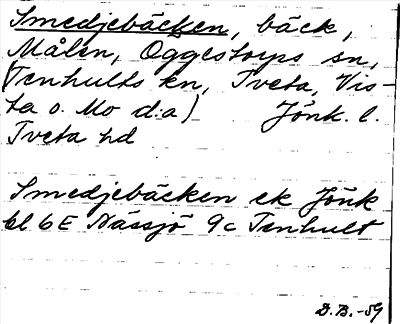 Smedjebäcken, bäck,
Målen, Oggestorps sn,
(Tenhults kn, Tveta, Vis-
ta o. Mo d:a) Jönk. l.
Tveta hd
Smedjebäcken ek Jönk
bl 6E Nässjö 9c Tenhult
D.B.-59